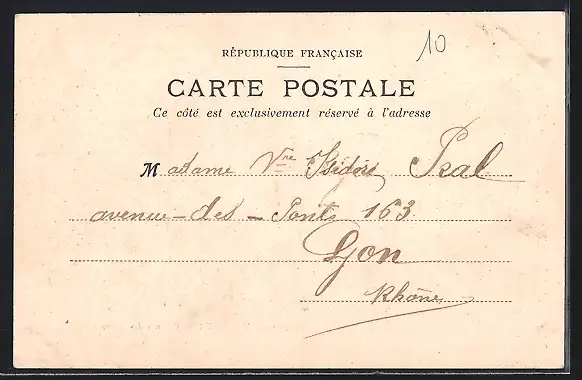 10
RÉPUBLIQUE FRANÇAISE
CARTE POSTALE
Ce côté est exclusivement réservé à l'adresse
Madame Vve Isidore Pral
avenue - des - Ponts 163
Lyon
Rhône